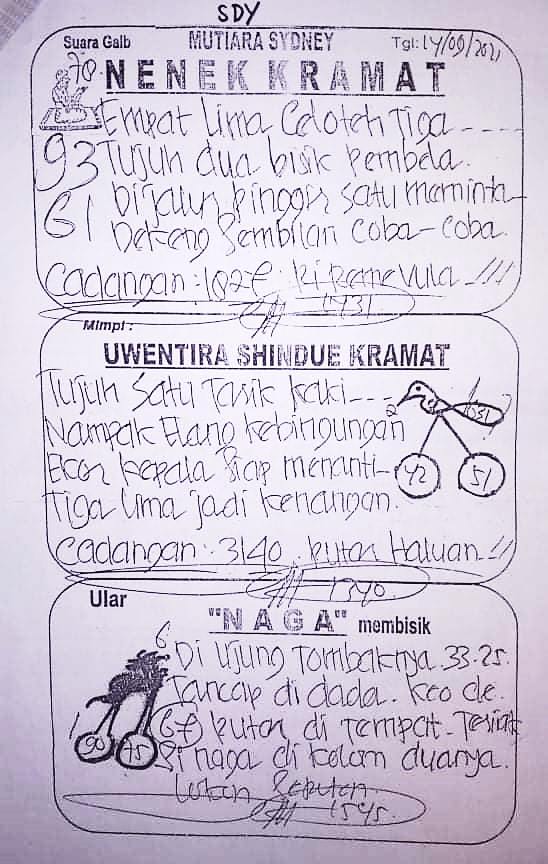 SDY
Suara Gaib MUTIARA SYDNEY Tgl: 14/09/2021
78.
NENEK KRAMAT
Empat Lima Celoteh Tiga ----
93 Tujuh dua bisik Pembela.
61 Dijalur Pinggir satu meminta
Dekeng Sembilan Coba-Coba.
Cadangan: 1827.
1431
Mimpi :
UWENTIRA SHINDUE KRAMAT
Tujuh Satu Tarik kaki ---
Nampak Elang kebingungan
Ekor kepala Siap menanti-
Tiga Lima jadi kenangan.
2
42 51
Cadangan: 3140. Putar Haluan !!
1340.
Ular
"NAGA" membisik
6
Di Ujung Tombaknya 33-25.
Tancap di dada. Keo cle.
67 Putar di Tempat-
Si naga di kolam duanya.
1 90 75
1545.